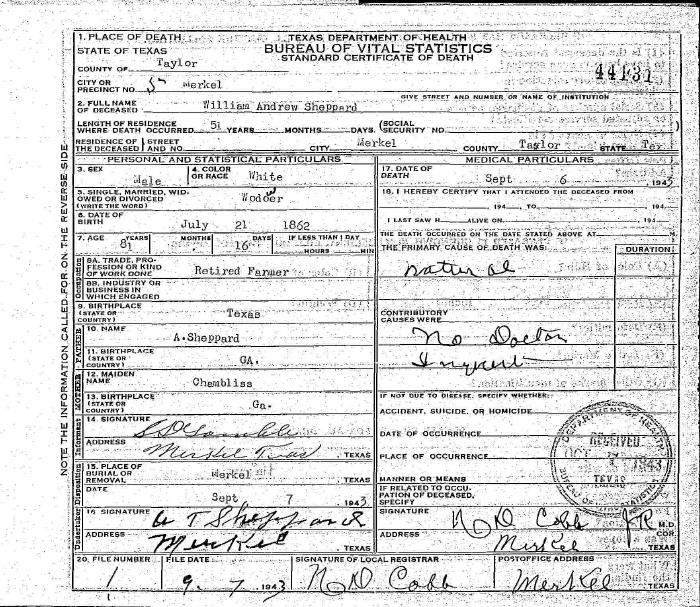 1. PLACE OF DEATH
TEXAS DEPARTMENT OF HEALTH
STATE OF TEXAS
BUREAU OF VITAL STATISTICS
STANDARD CERTIFICATE OF DEATH
COUNTY OF Taylor
44131
CITY OR PRECINCT NO. 5 Merkel
GIVE STREET AND NUMBER OR NAME OF INSTITUTION
2. FULL NAME OF DECEASED William Andrew Sheppard
LENGTH OF RESIDENCE WHERE DEATH OCCURRED 51 YEARS MONTHS DAYS (SOCIAL SECURITY NO. )
RESIDENCE OF THE DECEASED STREET AND NO. CITY Merkel COUNTY Taylor STATE Tex
PERSONAL AND STATISTICAL PARTICULARS
3. SEX Male
4. COLOR OR RACE White
5. SINGLE, MARRIED, WIDOWED OR DIVORCED (WRITE THE WORD) Wodoer
6. DATE OF BIRTH July 21 1862
7. AGE YEARS MONTHS DAYS IF LESS THAN 1 DAY
81 16 HOURS MIN
8A. TRADE, PROFESSION OR KIND OF WORK DONE Retired Farmer
8B. INDUSTRY OR BUSINESS IN WHICH ENGAGED
9. BIRTHPLACE (STATE OR COUNTRY) Texas
FATHER
10. NAME A.Sheppard
11. BIRTHPLACE (STATE OR COUNTRY) GA.
MOTHER
12. MAIDEN NAME Chembliss
13. BIRTHPLACE (STATE OR COUNTRY) Ga.
Informant
14. SIGNATURE
ADDRESS Merkel Texas, TEXAS
Disposition
15. PLACE OF BURIAL OR REMOVAL Merkel, TEXAS
DATE Sept 7 1943
Undertaker
16. SIGNATURE A T Sheppard
ADDRESS Merkel, TEXAS
MEDICAL PARTICULARS
17. DATE OF DEATH Sept 6, 1943
18. I HEREBY CERTIFY THAT I ATTENDED THE DECEASED FROM
194 , TO 194
I LAST SAW H ALIVE ON 194
THE DEATH OCCURRED ON THE DATE STATED ABOVE AT M.
THE PRIMARY CAUSE OF DEATH WAS: DURATION
Natural
CONTRIBUTORY CAUSES WERE
No Doctor
Inquest
IF NOT DUE TO DISEASE, SPECIFY WHETHER:
ACCIDENT, SUICIDE, OR HOMICIDE
DATE OF OCCURRENCE
PLACE OF OCCURRENCE
MANNER OR MEANS
IF RELATED TO OCCUPATION OF DECEASED, SPECIFY
SIGNATURE N D Cobb JP M.D. COR.
ADDRESS Merkel TEXAS
DEPARTMENT OF HEALTH
RECEIVED
OCT 1943
TEXAS
BUREAU OF VITAL STATISTICS
20. FILE NUMBER 1
FILE DATE 9-7, 1943
SIGNATURE OF LOCAL REGISTRAR N D Cobb
POSTOFFICE ADDRESS Merkel, TEXAS
NOTE THE INFORMATION CALLED FOR ON THE REVERSE SIDE